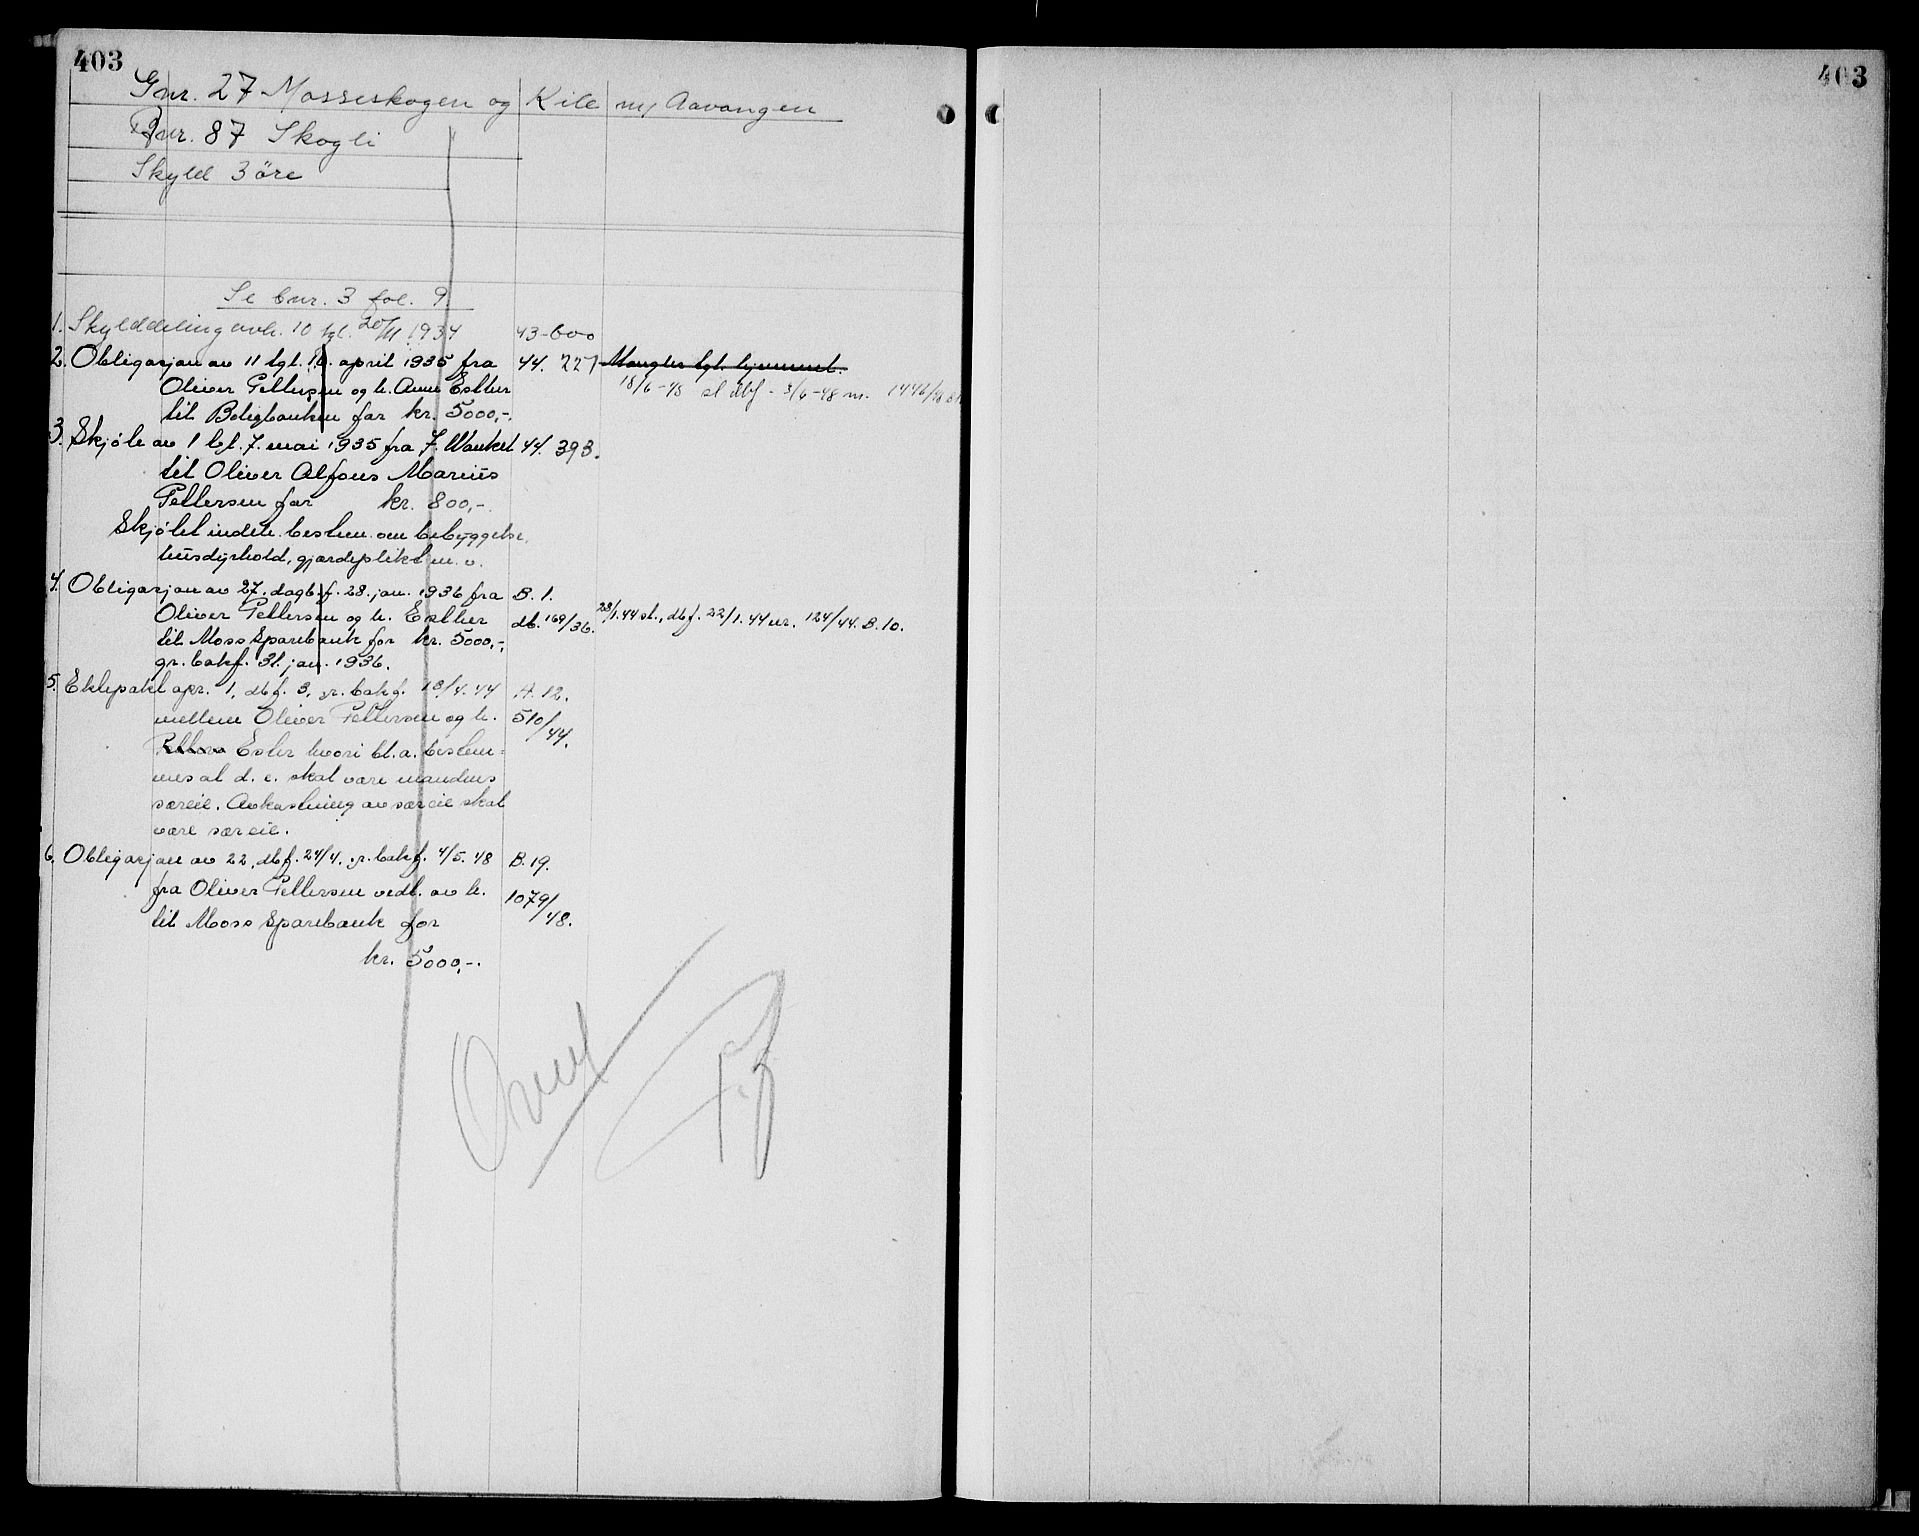 403
Gnr. 27 Mosseskogen og Kile m/ Aavangen
Bnr. 87 Skogli
Skyld 3 öre
Se bnr. 3 fol. 9.
1. Skylddeling avh. 10 tgl. 20/11 1934 43-600
2. Obligasjon av 11 tgl. 10. april 1935 fra 44. 227 Mangler tgl. hjemmel.
Oliver Pettersen og h. Anna Esther 18/6-48 sl dbf - 3/6-48 nr. 1446/48
til Boligbanken for kr. 5000,-.
3. Skjöte av 1 tgl. 7. mai 1935 fra F. Wankel 44. 393.
til Oliver Alfons Marius
Pettersen for kr. 800,-.
Skjötet indeh. bestem. om bebyggelse,
husdyrhold, gjærdeplikt m. v.
4. Obligasjon av 27. dagb.f. 28. jan. 1936 fra B. 1.
Oliver Pettersen og h. Esther db. 169/36. 28/1.44 sl., dbf. 22/1.44 nr. 124/44. B. 10.
til Moss Sparebank for kr. 5000,-,
gr. bokf. 31. jan. 1936.
5. Ektepakt opr. 1, dbf. 3, gr. bokf. 18/4.44 A. 12.
mellem Oliver Pettersen og h. 510/44.
Ester hvori bl. a. bestem-
mes at d. e. skal være mandens
særeie. Avkastning av særeie skal
være særeie.
6. Obligasjon av 22, dbf. 24/4. gr. bokf. 4/5. 48 B. 19.
fra Oliver Pettersen vedt. av h. 1079/48.
til Moss Sparebank for
kr. 5000,-.
403